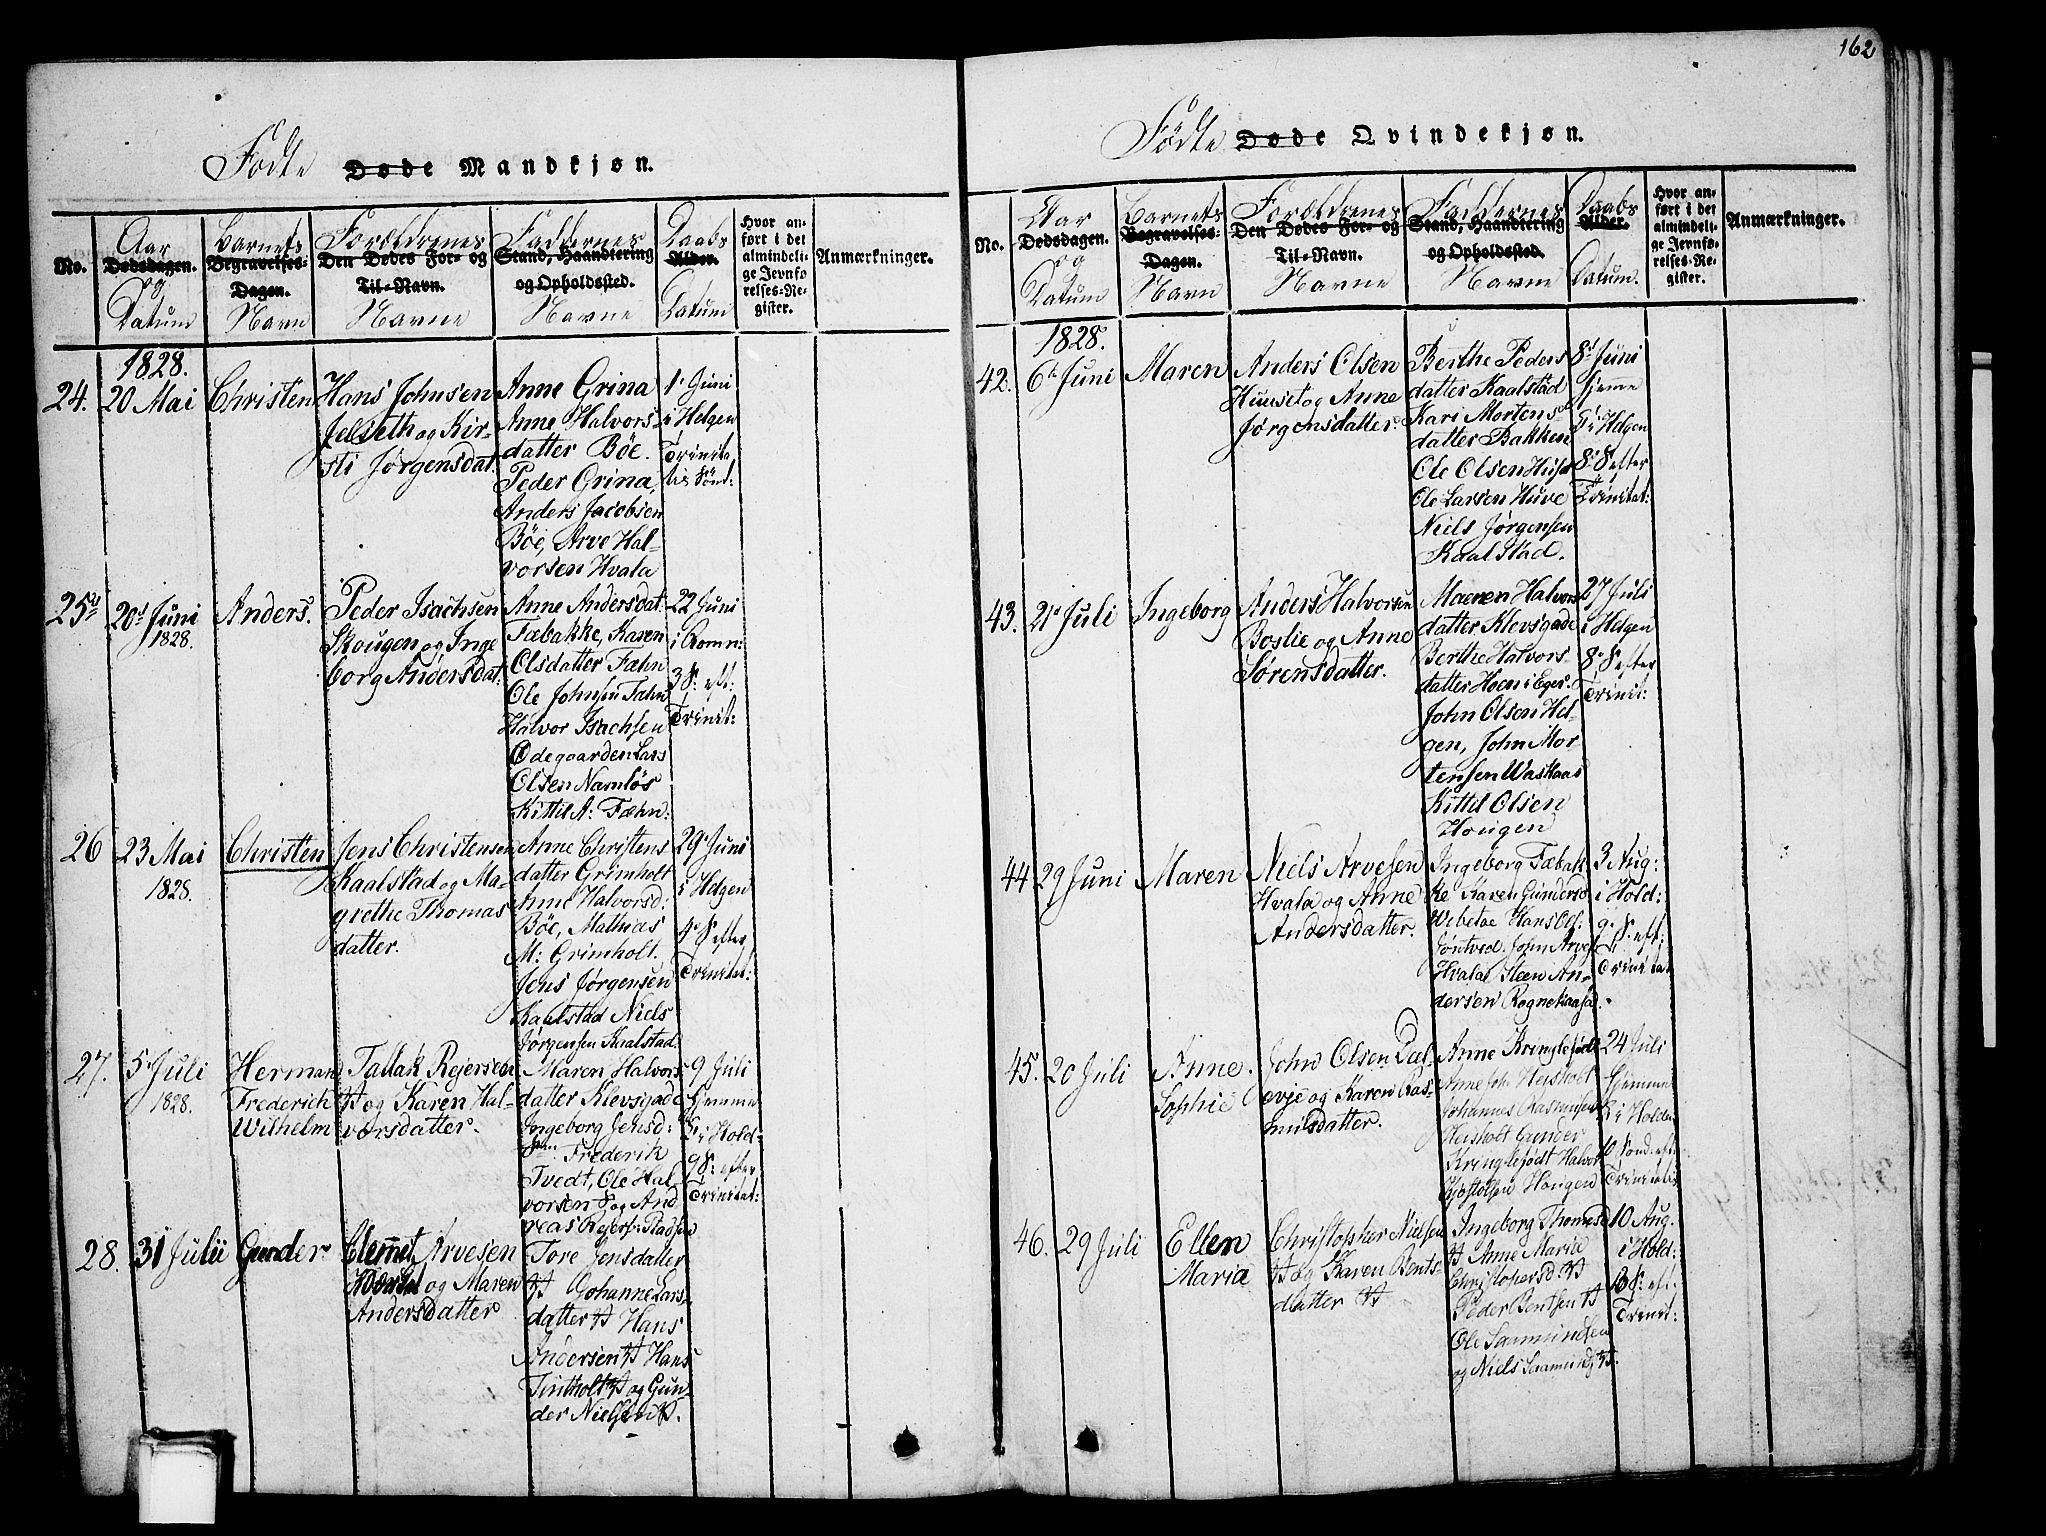 162
Fødte Døde Mandkjøn.
No.
Aar Dødsdagen. og Datum
Barnets Begravelses-Dagen. Navn
Forældrenes Den Dødes For- og Til-Navn. Navne
Faddernes Stand, Haandtering og Opholdssted. Navne
Daabs Alder. Datum
Hvor anført i det almindelige Jevnførelses-Register.
Anmærkninger.
1828.
24.
20 Mai
Christen
Hans Johnsen
Jelseth og Kir-
sti Jørgensdat.
Anne Grina
Anne Halvors-
datter Böe.
Peder Grina,
Anders Jacobsen
Böe, Arve Hal-
vorsen Hvala
1. Juni
i Helgen
Trinita
tis Sönd:
25
20. Juni
1828.
Anders.
Peder Isachsen
Skougen og Inge
borg Andersdat.
Anne Andersdat.
Fæbakke, Karen
Olsdatter Fæhn
Ole Johnsen Fæhn
Halvor Isachsen
Ødegaarden Lars
Olsen Namløs
Kittil A: Fæhn.
22 Juni
i Romn:
3 S: eft:
Trinit:
26
23 Mai
1828.
Christen
Jens Christensen
Kaalstad og Ma-
grethe Thomas
datter.
Anne Christens
datter Grimholt
Anne Halvorsd:
Böe, Mathias
M: Grimholt.
Jens Jørgensen
Kaalstad Niels
Jørgensen Kaalstad.
29 Juni
i Helgen
4. S. efter
Trinitat:
27.
5. Juli
1828.
Herman
Frederich
Wilhelm
Tallak Rejersen
og Karen Hal-
vorsdatter.
Maren Halvors-
datter Klevsgade
Ingeborg Jensd:
Frederik
Tvedt, Ole Hal-
vorsen og And
reas Rejers:
9 Juli
hjemme
i Hold-
9 S: efter
Trinitat:
28.
31 Julii
Gunder
Clemet Arvesen
og Maren
Andersdatter
Tore Jensdatter
Johanne Lars-
datter Hans
Andersen Hans
Tintholt og Gun-
der Nielsen
Fødte Døde Qvindekjøn.
No.
Aar Dødsdagen. og Datum
Barnets Begravelses-Dagen. Navn
Forældrenes Den Dødes For- og Til-Navn. Navne
Faddernes Stand, Haandtering og Opholdssted. Navne
Daabs Alder. Datum.
Hvor anført i det almindelige Jevnførelses-Register.
Anmærkninger.
1828.
42.
6. Juni
Maren
Anders Olsen
Huuset og Anne
Jørgensdatter.
Berthe Peders
datter Kaalstad
Kari Mortens
datter Bakken
Ole Olsen Huset
Ole Larsen Huve
Niels Jørgensen
Kaalstad.
8. Juni
hjeme
i Helgen
8. S efter
Trinitat:
43.
21. Juli
Ingeborg
Anders Halvorsen
Boslie og Anne
Sørensdatter.
Maren Halvors
datter Klevsgade
Berthe Halvors-
datter Hoen i Eger.
John Olsen Hel-
gen, John Mor
tensen Waskaas
Kittil Olsen
Hougen
27 Juli
i Helgen
8. S efter
Trinit:
44
29 Juni
Maren
Niels Arvesen
Hvala og Anne
Andersdatter.
Ingeborg Fæbak
ke Karen Gundersd
Wibetoe Hans Ols:
Jøntved. John Arves
Hvala Steen An-
dersen Rognekaasa.
3 Aug:
i Hold:
9. S. eft:
Trinitat
45.
20 Juli
Anne
Sophie
John Olsen Dæl
evje og Karen Ras-
musdatter.
Anne Kringlefødt
Anne Joh Heisholt
Johannes Rasmusen
Heisholt Gunder
Kringlefødt Halvor
Kjøstolsen Hougen
24 Juli
hjemme
i Holden
10 Sønd. eft
Trinitatis
46.
29 Juli
Ellen
Maria
Christopher Nielsen
og Karen Bents-
datter
Ingeborg Thomesd
Anne Maria
Christophersd.
Peder Bentsen
Ole Saamundsen
og Niels Saamunds.
10 Aug.
i Hold:
S. eft.
Trinit: